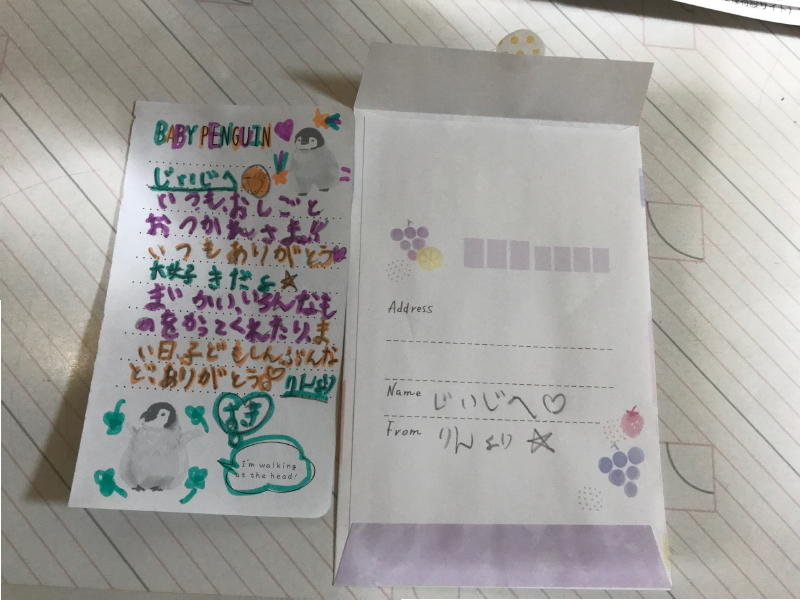 BABY PENGUIN
じいじへ
いつもおしごと
おつかれさま!!
いつもありがとう
大好きだよ☆
まいかい、いろんなも
のをかってくれたり、ま
い日、子どもしんぶんな
ど、ありがとう♡
りんより
すき
I'm walking
at the head!
Address
Name じいじへ♡
From りんより☆